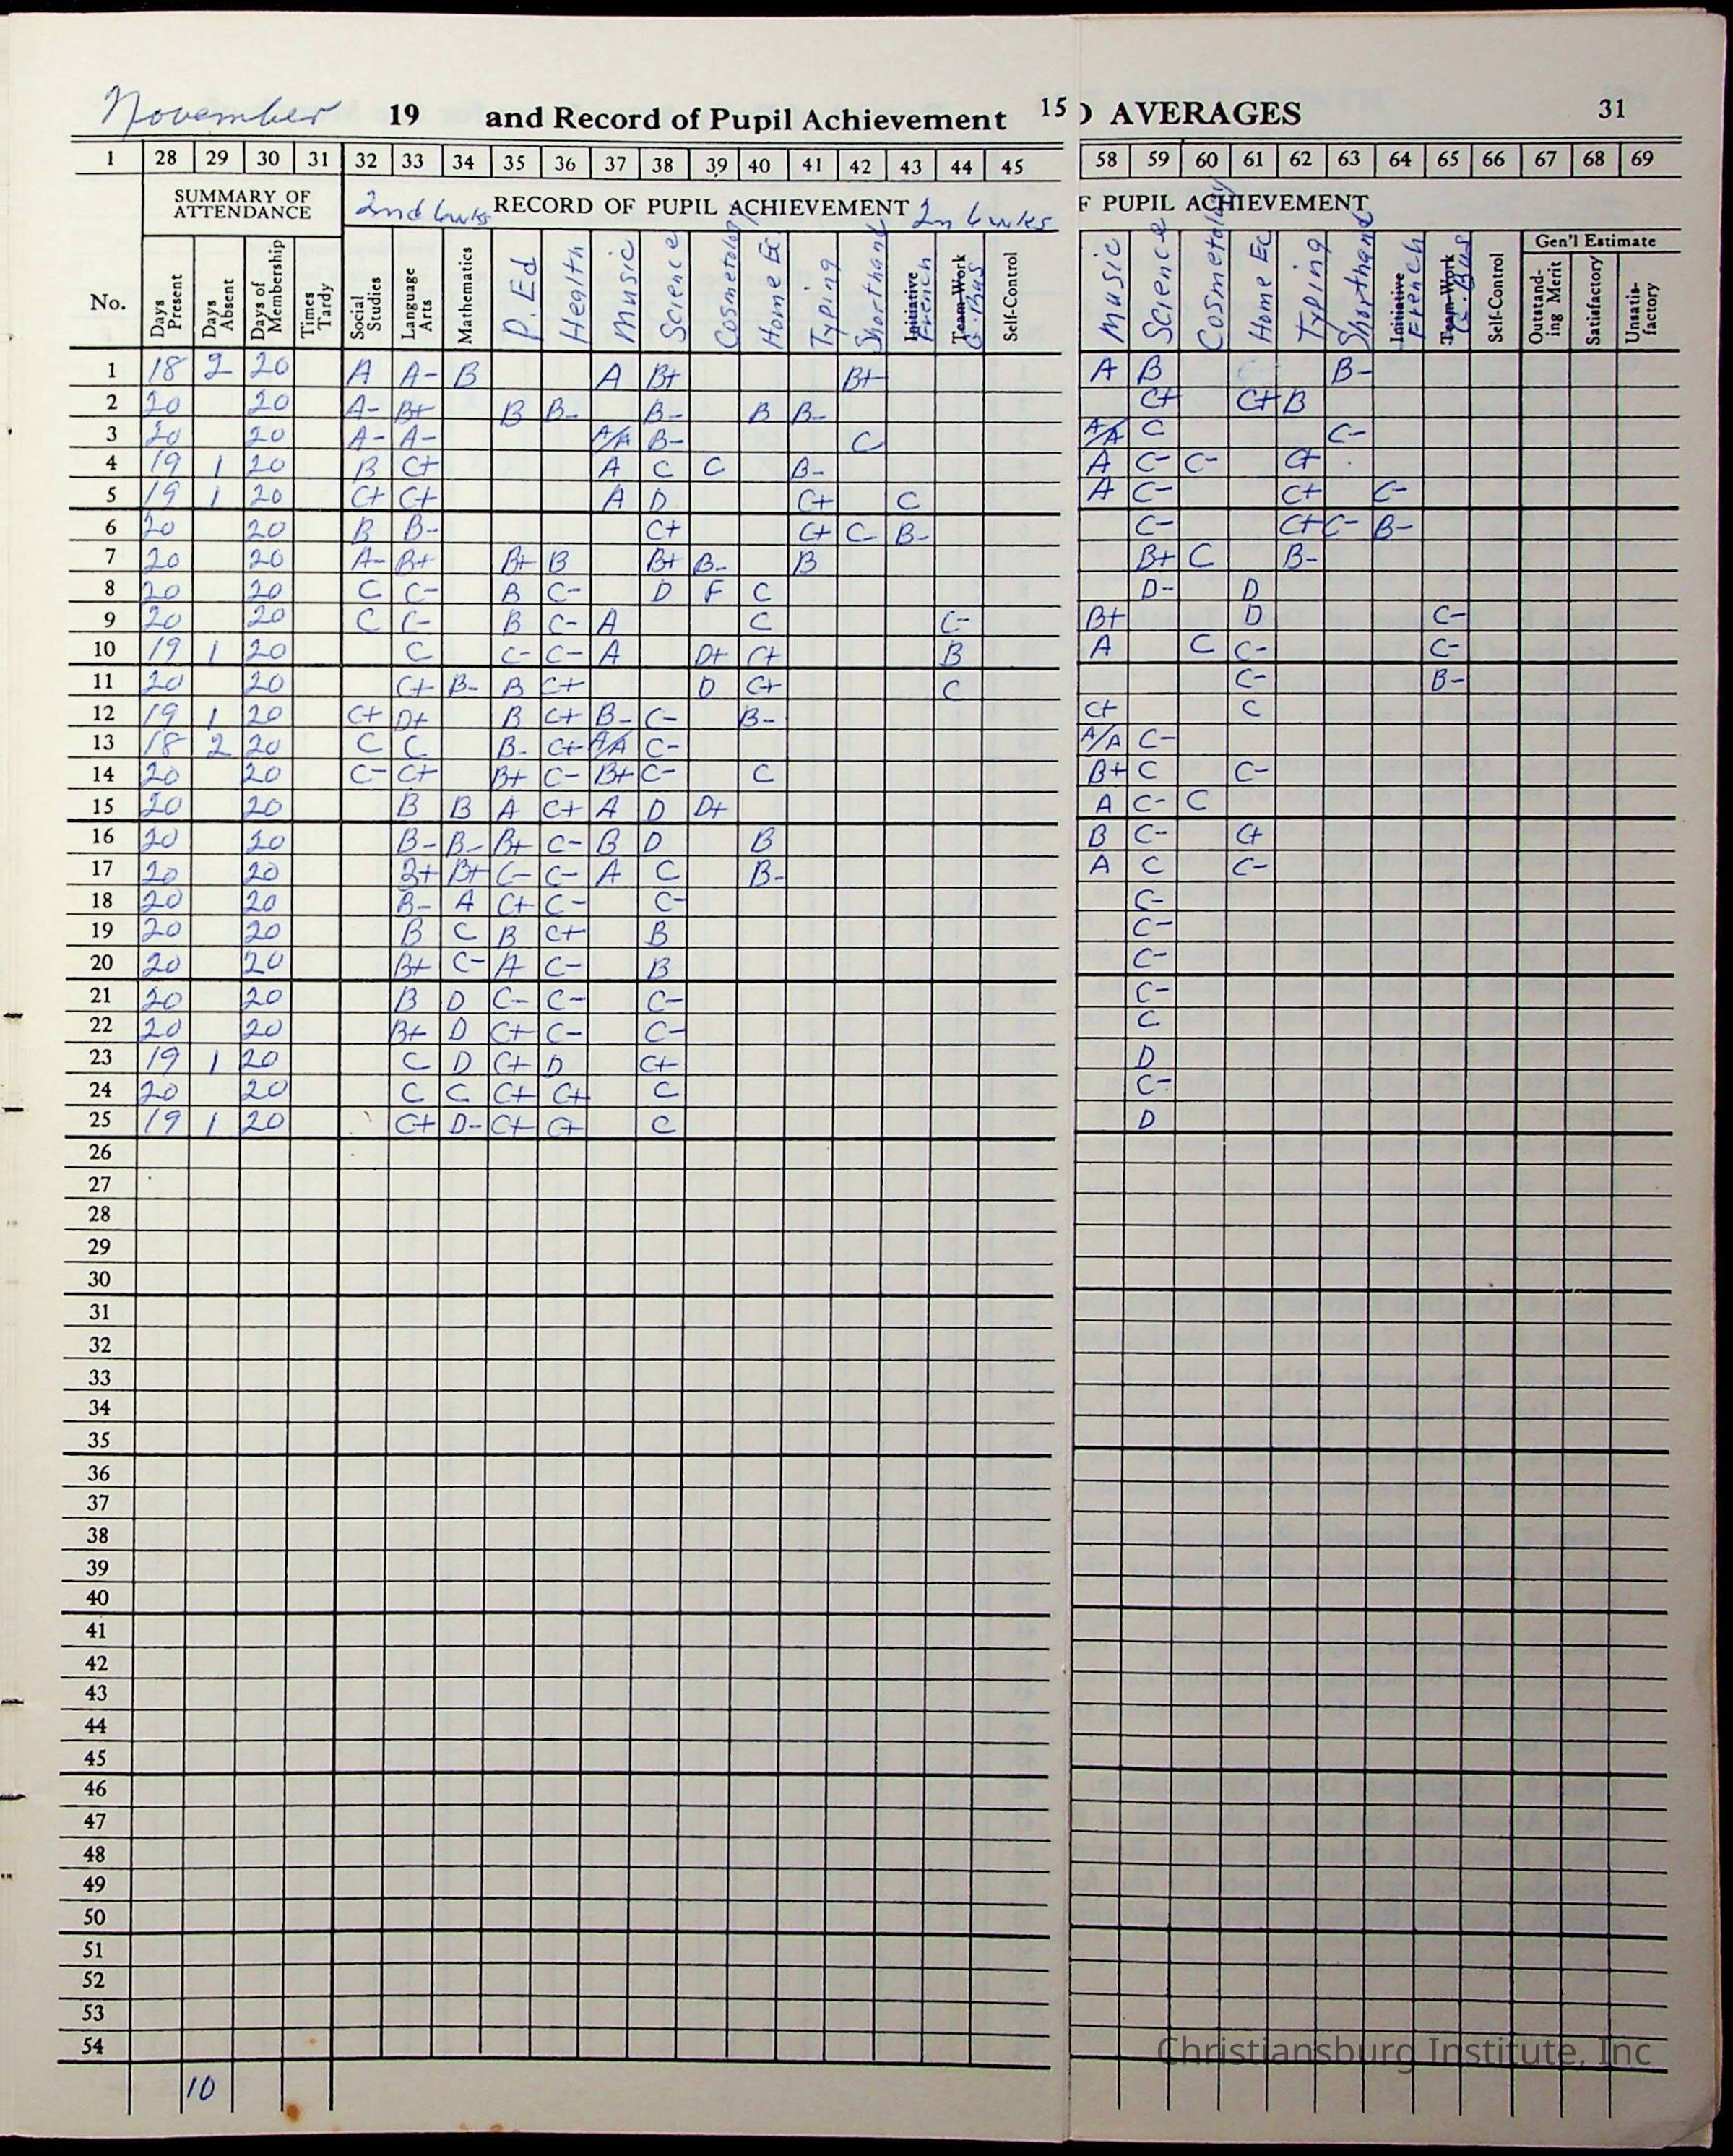 November 19 and Record of Pupil Achievement 15 ) AVERAGES 31
1 28 29 30 31 32 33 34 35 36 37 38 39 40 41 42 43 44 45 58 59 60 61 62 63 64 65 66 67 68 69
SUMMARY OF ATTENDANCE 2nd 6wks RECORD OF PUPIL ACHIEVEMENT 2n 6 wks F PUPIL ACHIEVEMENT
Gen'l Estimate
No. Days Present Days Absent Days of Membership Times Tardy Social Studies Language Arts Mathematics P. Ed Health Music Science Cosmetology Home Ec Typing Shorthand Initiative French Team-Work G. Bus Self-Control Music Science Cosmetology Home Ec Typing Shorthand Initiative French Team-Work G. Bus Self-Control Outstanding Merit Satisfactory Unsatisfactory
1 18 2 20 A A- B A B+ B+ A B B-
2 20 20 A- B+ B B- B- B B- C+ C+ B
3 20 20 A- A- A/A B- C A/A C C-
4 19 1 20 B C+ A C C B- A C- C- C+
5 19 1 20 C+ C+ A D C+ C A C- C+ C-
6 20 20 B B- C+ C+ C- B- C- C+ C- B-
7 20 20 A- B+ B+ B B+ B- B B+ C B-
8 20 20 C C- B C- D F C D- D
9 20 20 C C- B C- A C C- B+ D C-
10 19 1 20 C C- C- A D+ C+ B A C C- C-
11 20 20 C+ B- B C+ D C+ C C- B-
12 19 1 20 C+ D+ B C+ B- C- B- C+ C
13 18 2 20 C C B- C+ A/A C- A/A C-
14 20 20 C- C+ B+ C- B+ C- C B+ C C-
15 20 20 B B A C+ A D D+ A C- C
16 20 20 B- B- B+ C- B D B B C- C+
17 20 20 B+ B+ C- C- A C B- A C C-
18 20 20 B- A C+ C- C- C-
19 20 20 B C B C+ B C-
20 20 20 B+ C- A C- B C-
21 20 20 B D C- C- C- C-
22 20 20 B+ D C+ C- C- C
23 19 1 20 C D C+ D C+ D
24 20 20 C C C+ C+ C C-
25 19 1 20 C+ D- C+ C+ C D
26
27
28
29
30
31
32
33
34
35
36
37
38
39
40
41
42
43
44
45
46
47
48
49
50
51
52
53
54
Christiansburg Institute, Inc
10